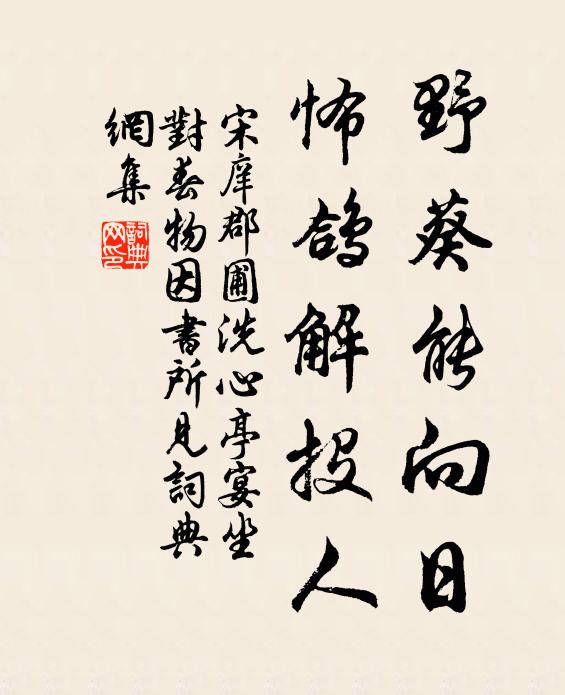 野葵能向日
怖鴿解投人
宋庠郡圃洗心亭宴坐
對春物因書所見詞典
網集
詞典
网印